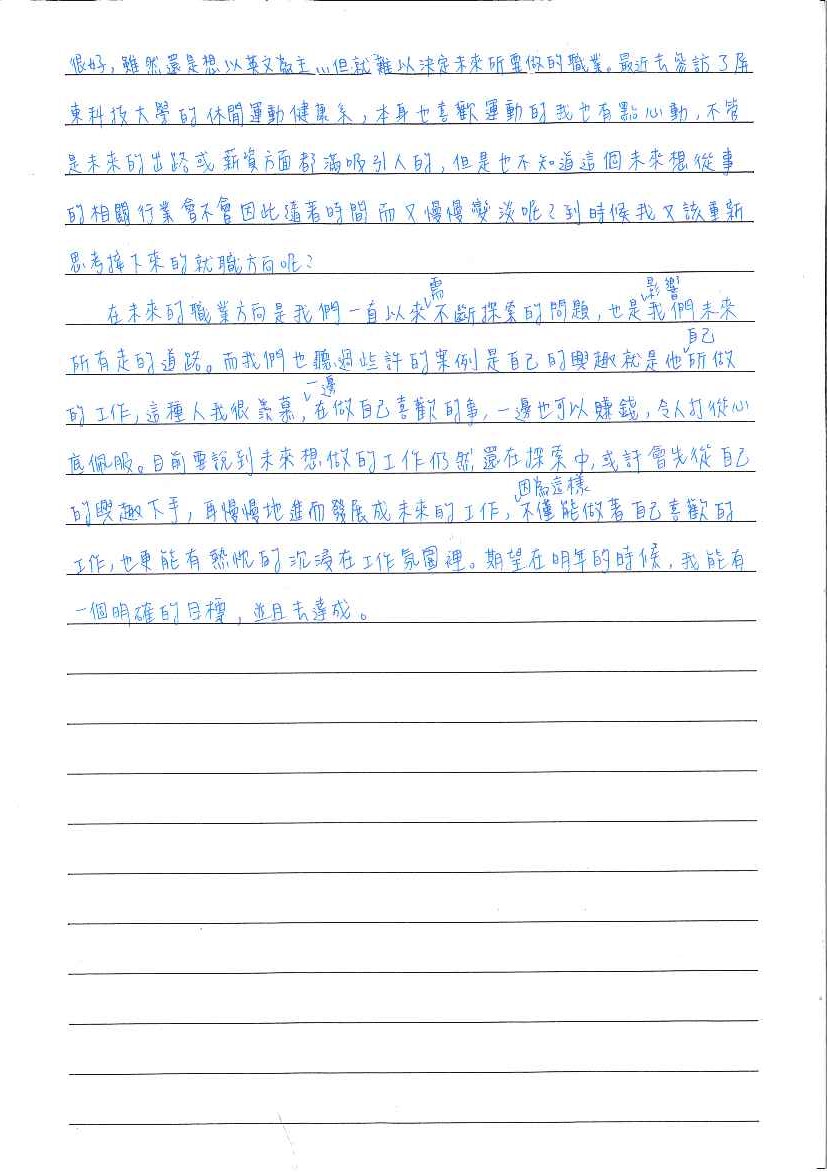 很好，雖然還是想以英文為主...但就難以決定未來所要做的職業。最近去參訪了屏
東科技大學的休閒運動健康系，本身也喜歡運動的我也有點心動，不管
是未來的出路或薪資方面都滿吸引人的，但是也不知道這個未來想從事
的相關行業會不會因此隨著時間而又慢慢變淡呢？到時候我又該重新
思考接下來的就職方向呢？
在未來的職業方向是我們一直以來需不斷探索的問題，也是影響我們未來
所有走的道路。而我們也聽過些許的案例是自己的興趣就是他自己所做
的工作，這種人我很羨慕，一邊在做自己喜歡的事，一邊也可以賺錢，令人打從心
底佩服。目前要說到未來想做的工作仍然還在探索中，或許會先從自己
的興趣下手，再慢慢地進而發展成未來的工作，因為這樣不僅能做著自己喜歡的
工作，也更能有熱忱的沉浸在工作氛圍裡。期望在明年的時候，我能有
一個明確的目標，並且去達成。